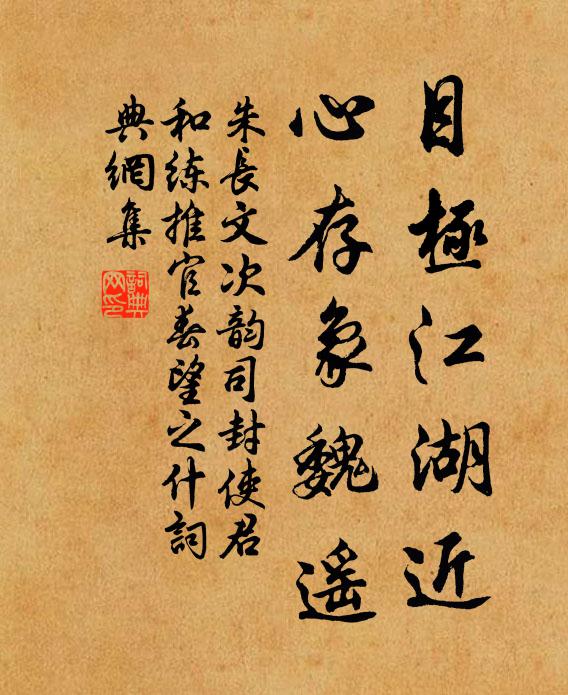 目極江湖近
心存象魏遥
朱長文次韵司封使君
和练推官春望之什詞
典網集
詞典网印